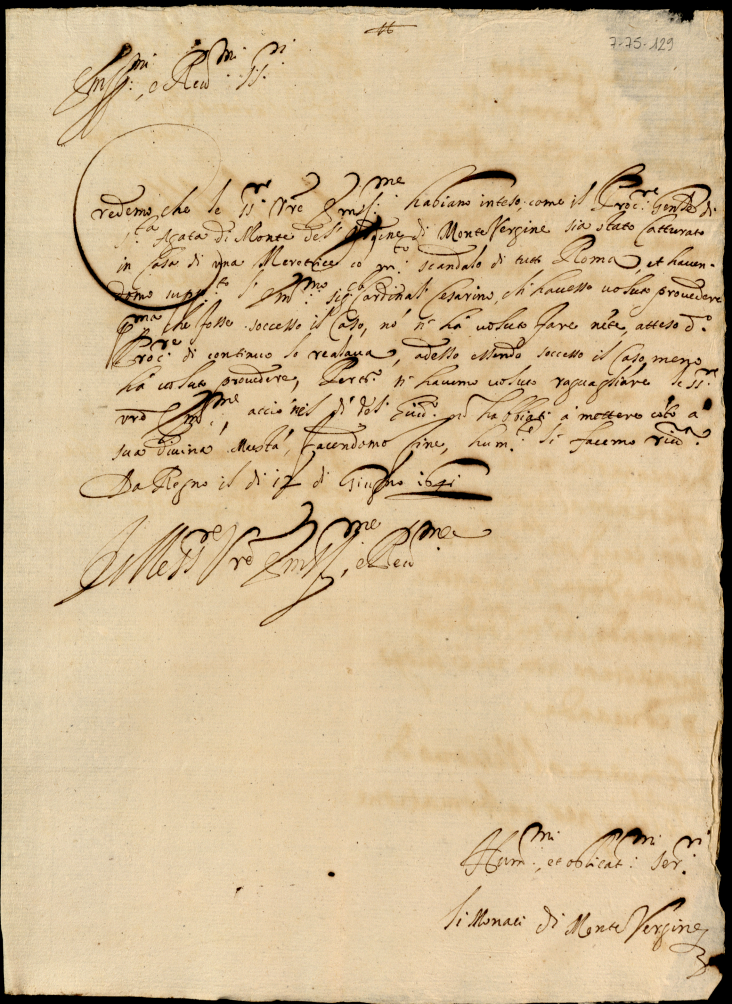 7-75-129
Em.mi, e Reu.mi SS.ri
Credemo, che le SS.rie Vre Em.me habiano inteso come il Proc.re Gen.le di
S.ta Agata di Monte dell'ordine di Monte Vergine sia stato catturato
in casa di una Meretrice co m.to scandalo di tutta Roma, et haven-
domo supp.to l'Em.mo sig. Cardinal Cesarino, ch'havesse voluto provedere
p.ma che fosse soccesso il caso, nò n' hà voluto fare nète, atteso d.o
Proc.re di continuo lo realava, adesso essendo soccesso il caso meno
hà voluto provedere, Perciò n' havemo voluto raguagliare le SS.rie
vre Em.me, acciò nel dì del Giud.o nò habbiati à mettere còto à
sua divina Maestà, facendomo fine, hum.te li facemo riu.za
Da Regno il dì 17 di Giugno 1641
Delle SS.rie Vre Em.me, e Reu.me
Hum.mi, et oblicat.mi Ser.ri
Li Monaci di Monte Vergine